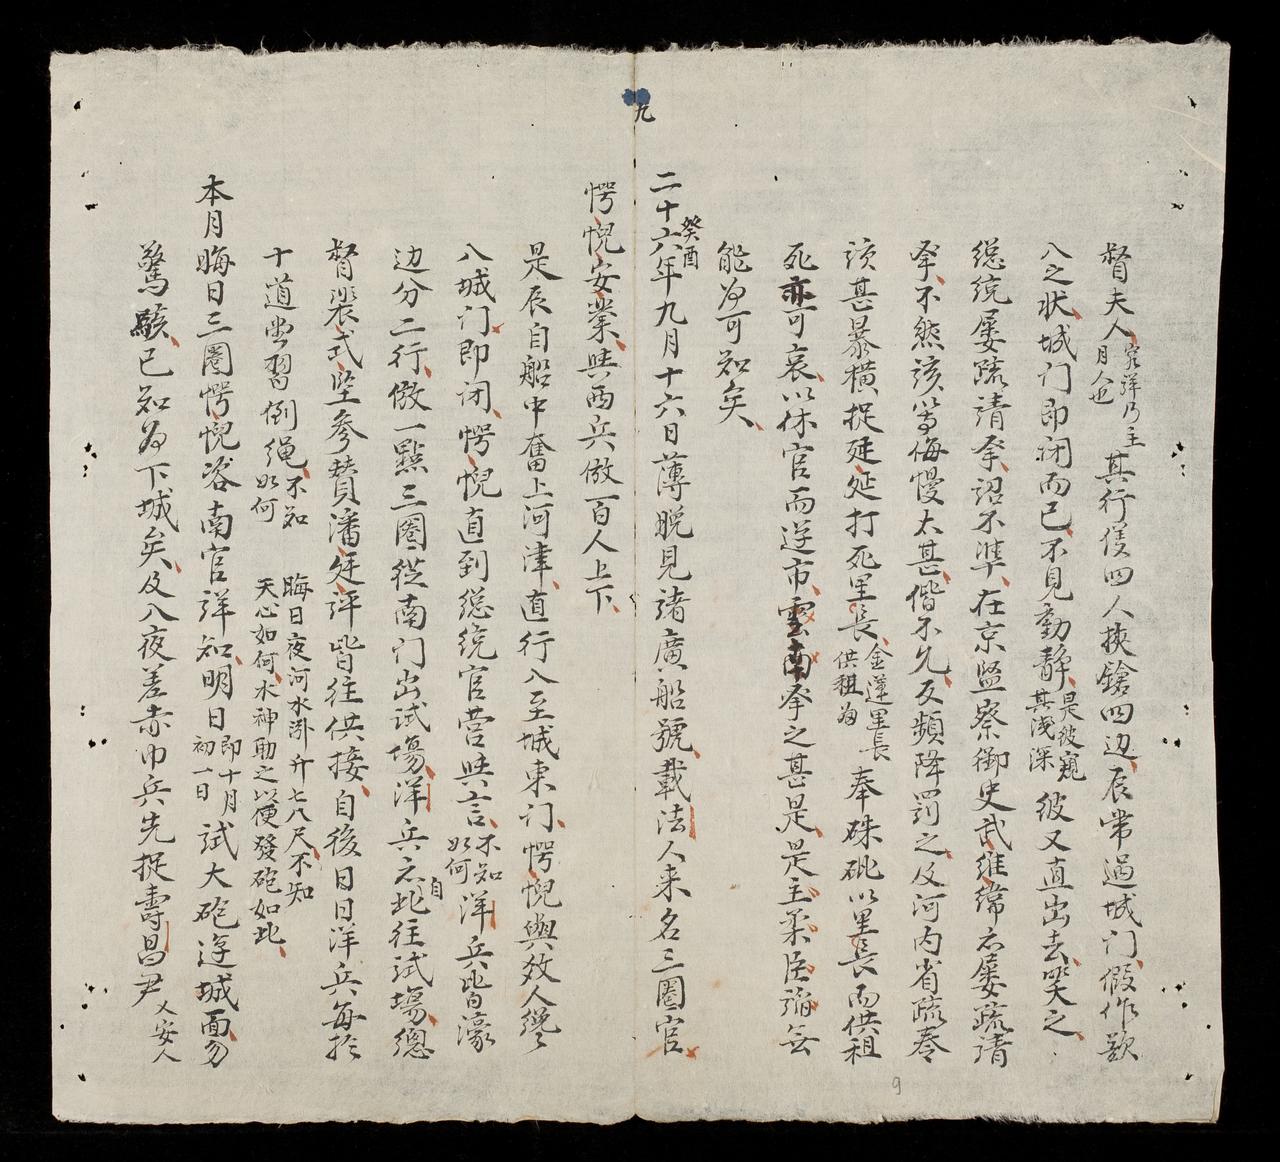 九
督夫人宛洋乃主月人也其行侵四人挾鎗四边辰常過城门假作歇
入之狀城门即闭而已不見動静是彼窺其浅深彼又直出去笑之
縂統屡疏請拏詔不準在京監察御史武維緯亦屡疏請
拏不然該等侮慢太甚偕不允反頻降罰之及河内省疏奏
該甚暴橫捉延延打死里長金蓮里長供租為奉硃砒以里長而供租
死亦可哀以休官而逆市雲南拏之甚是是主柔臣谫無
能為可知矣
二十六年癸酉九月十六日薄晚見諸廣船號載法人来名三圈官
愕怳安業與西兵倣百人上下
是辰自船中奮上河津直行入至城東门愕怳與效人纔
入城门即闭愕怳直到縂統官营與言不知如何洋兵皆濠
边分二行倣一點三圈從南门出試塲洋兵亦自北往試塲總
督裴式坚参賛潘廷評皆往供接自後日日洋兵每於
十道堂習倒绳不知如何晦日夜河水㴔升七八尺不知天心如何水神助之以便發砲如此
本月晦日三圈愕怳咨南官詳知明日即十月初一日試大砲近城面勿
驚駭已知為下城矣及入夜差赤巾兵先捉壽昌尹乂安人
9